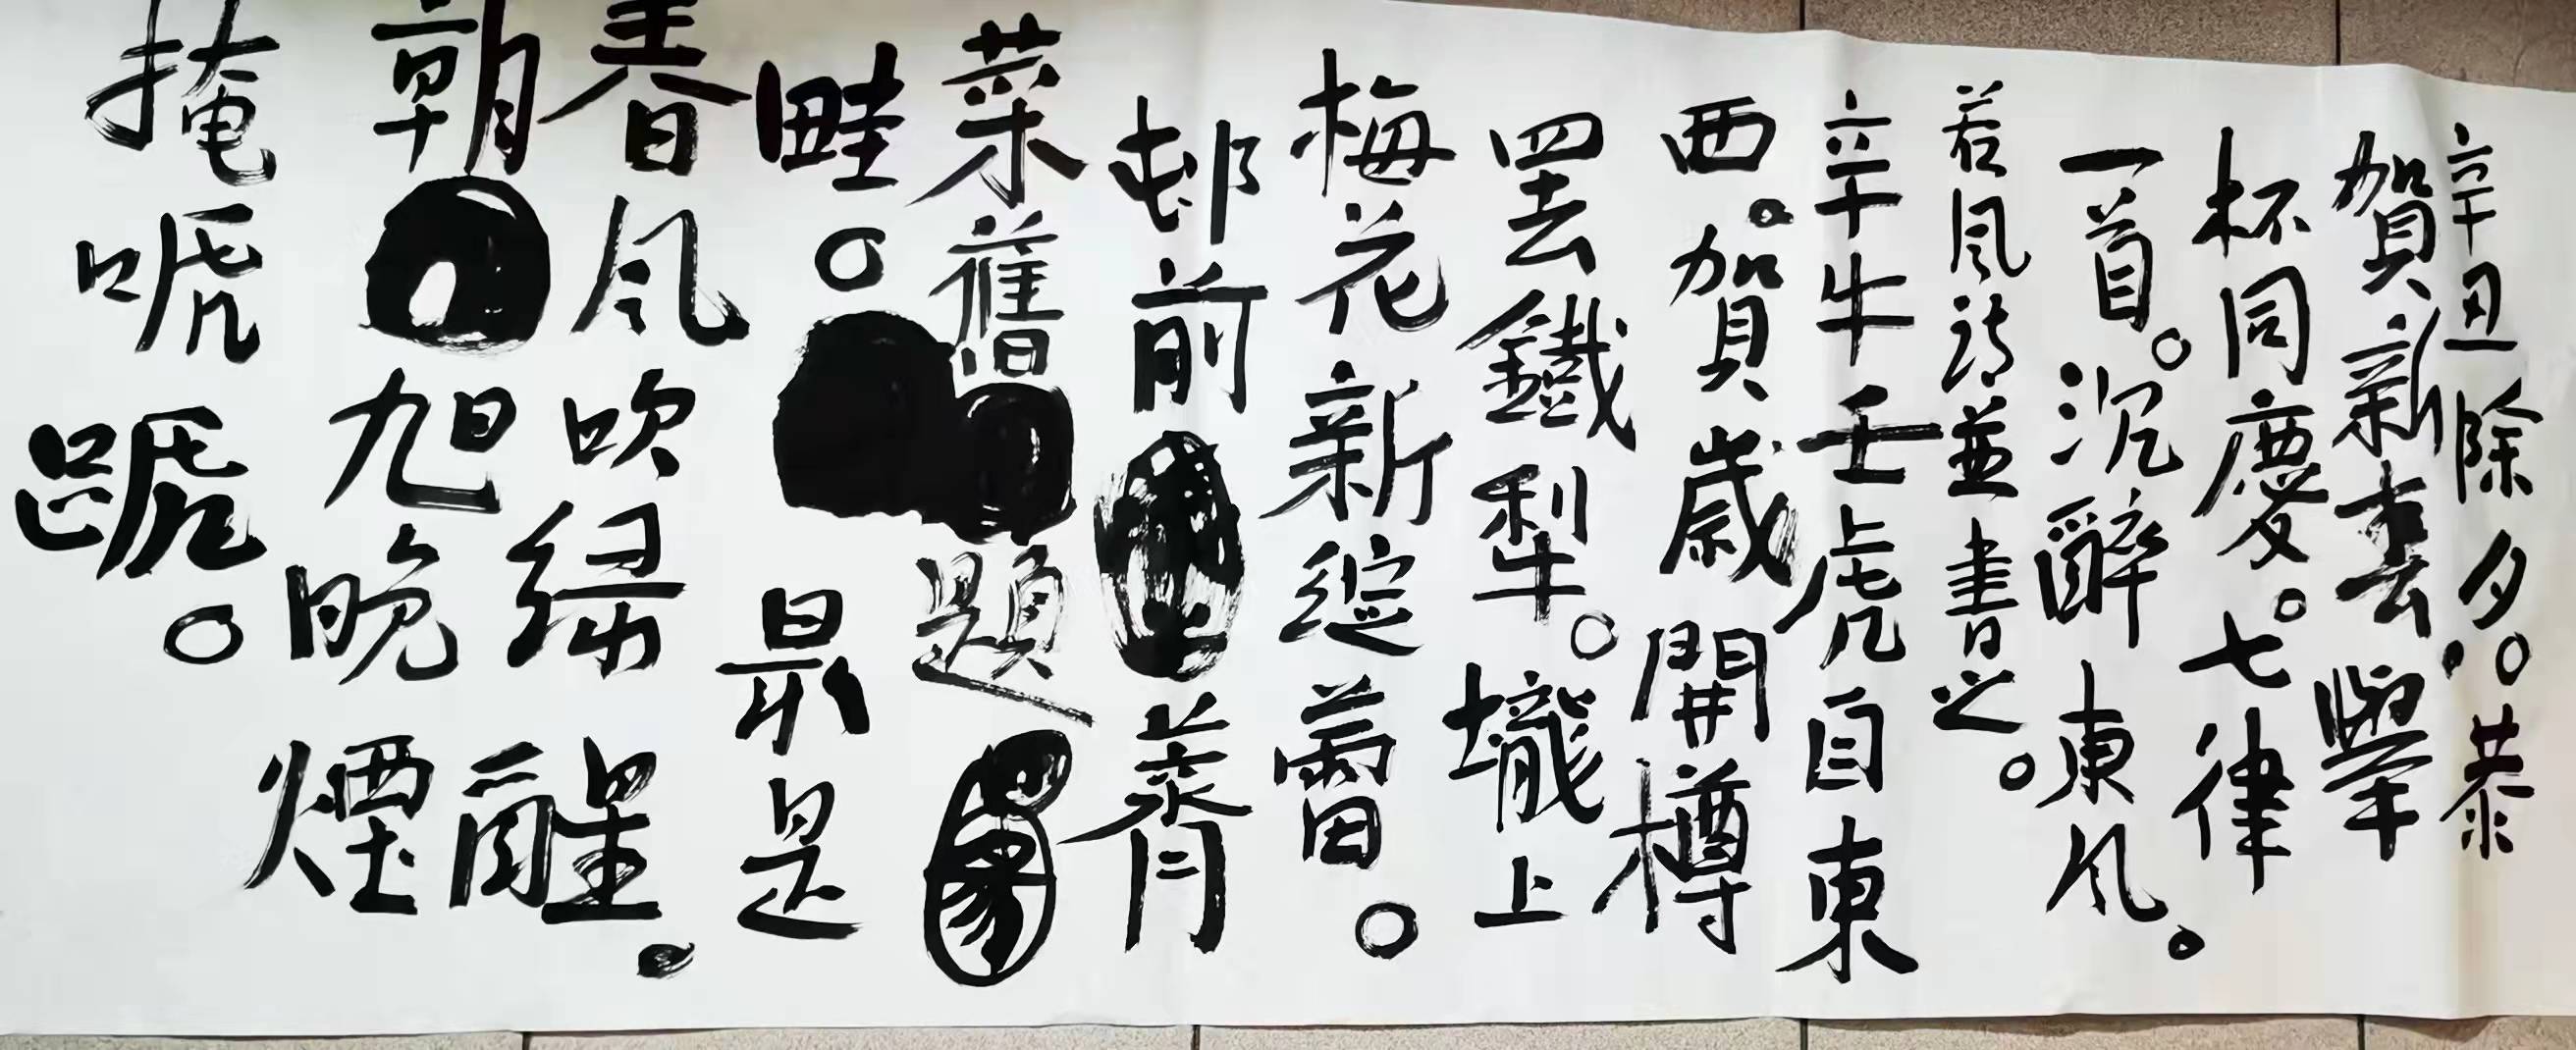 辛丑除夕。恭
賀新春舉
杯同慶。七律
一首。沉醉東風。
若風詩並書之。
辛牛壬虎自東
西。賀歲開樽
罢去鐵犁。壠上
梅花新綻蕾。
邨前菁
菜舊題
畦。最是
春風吹绿醒。
朝旭晚煙
掩唬踞。